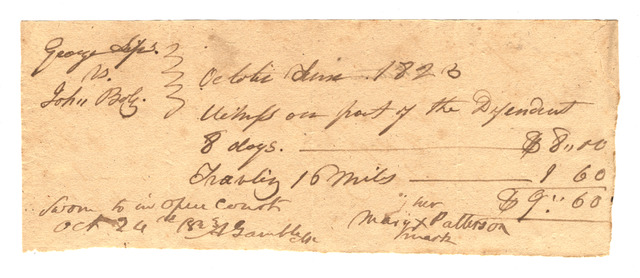 George
vs.
John Boly.
October Term 1823
Witness on part of the Defendent
8 days. $8,,00
Travling 16 Mils 1 60
$9,,60
Sworn to in open Court
Oct 24th 1823
her
Mary X Patterson
mark